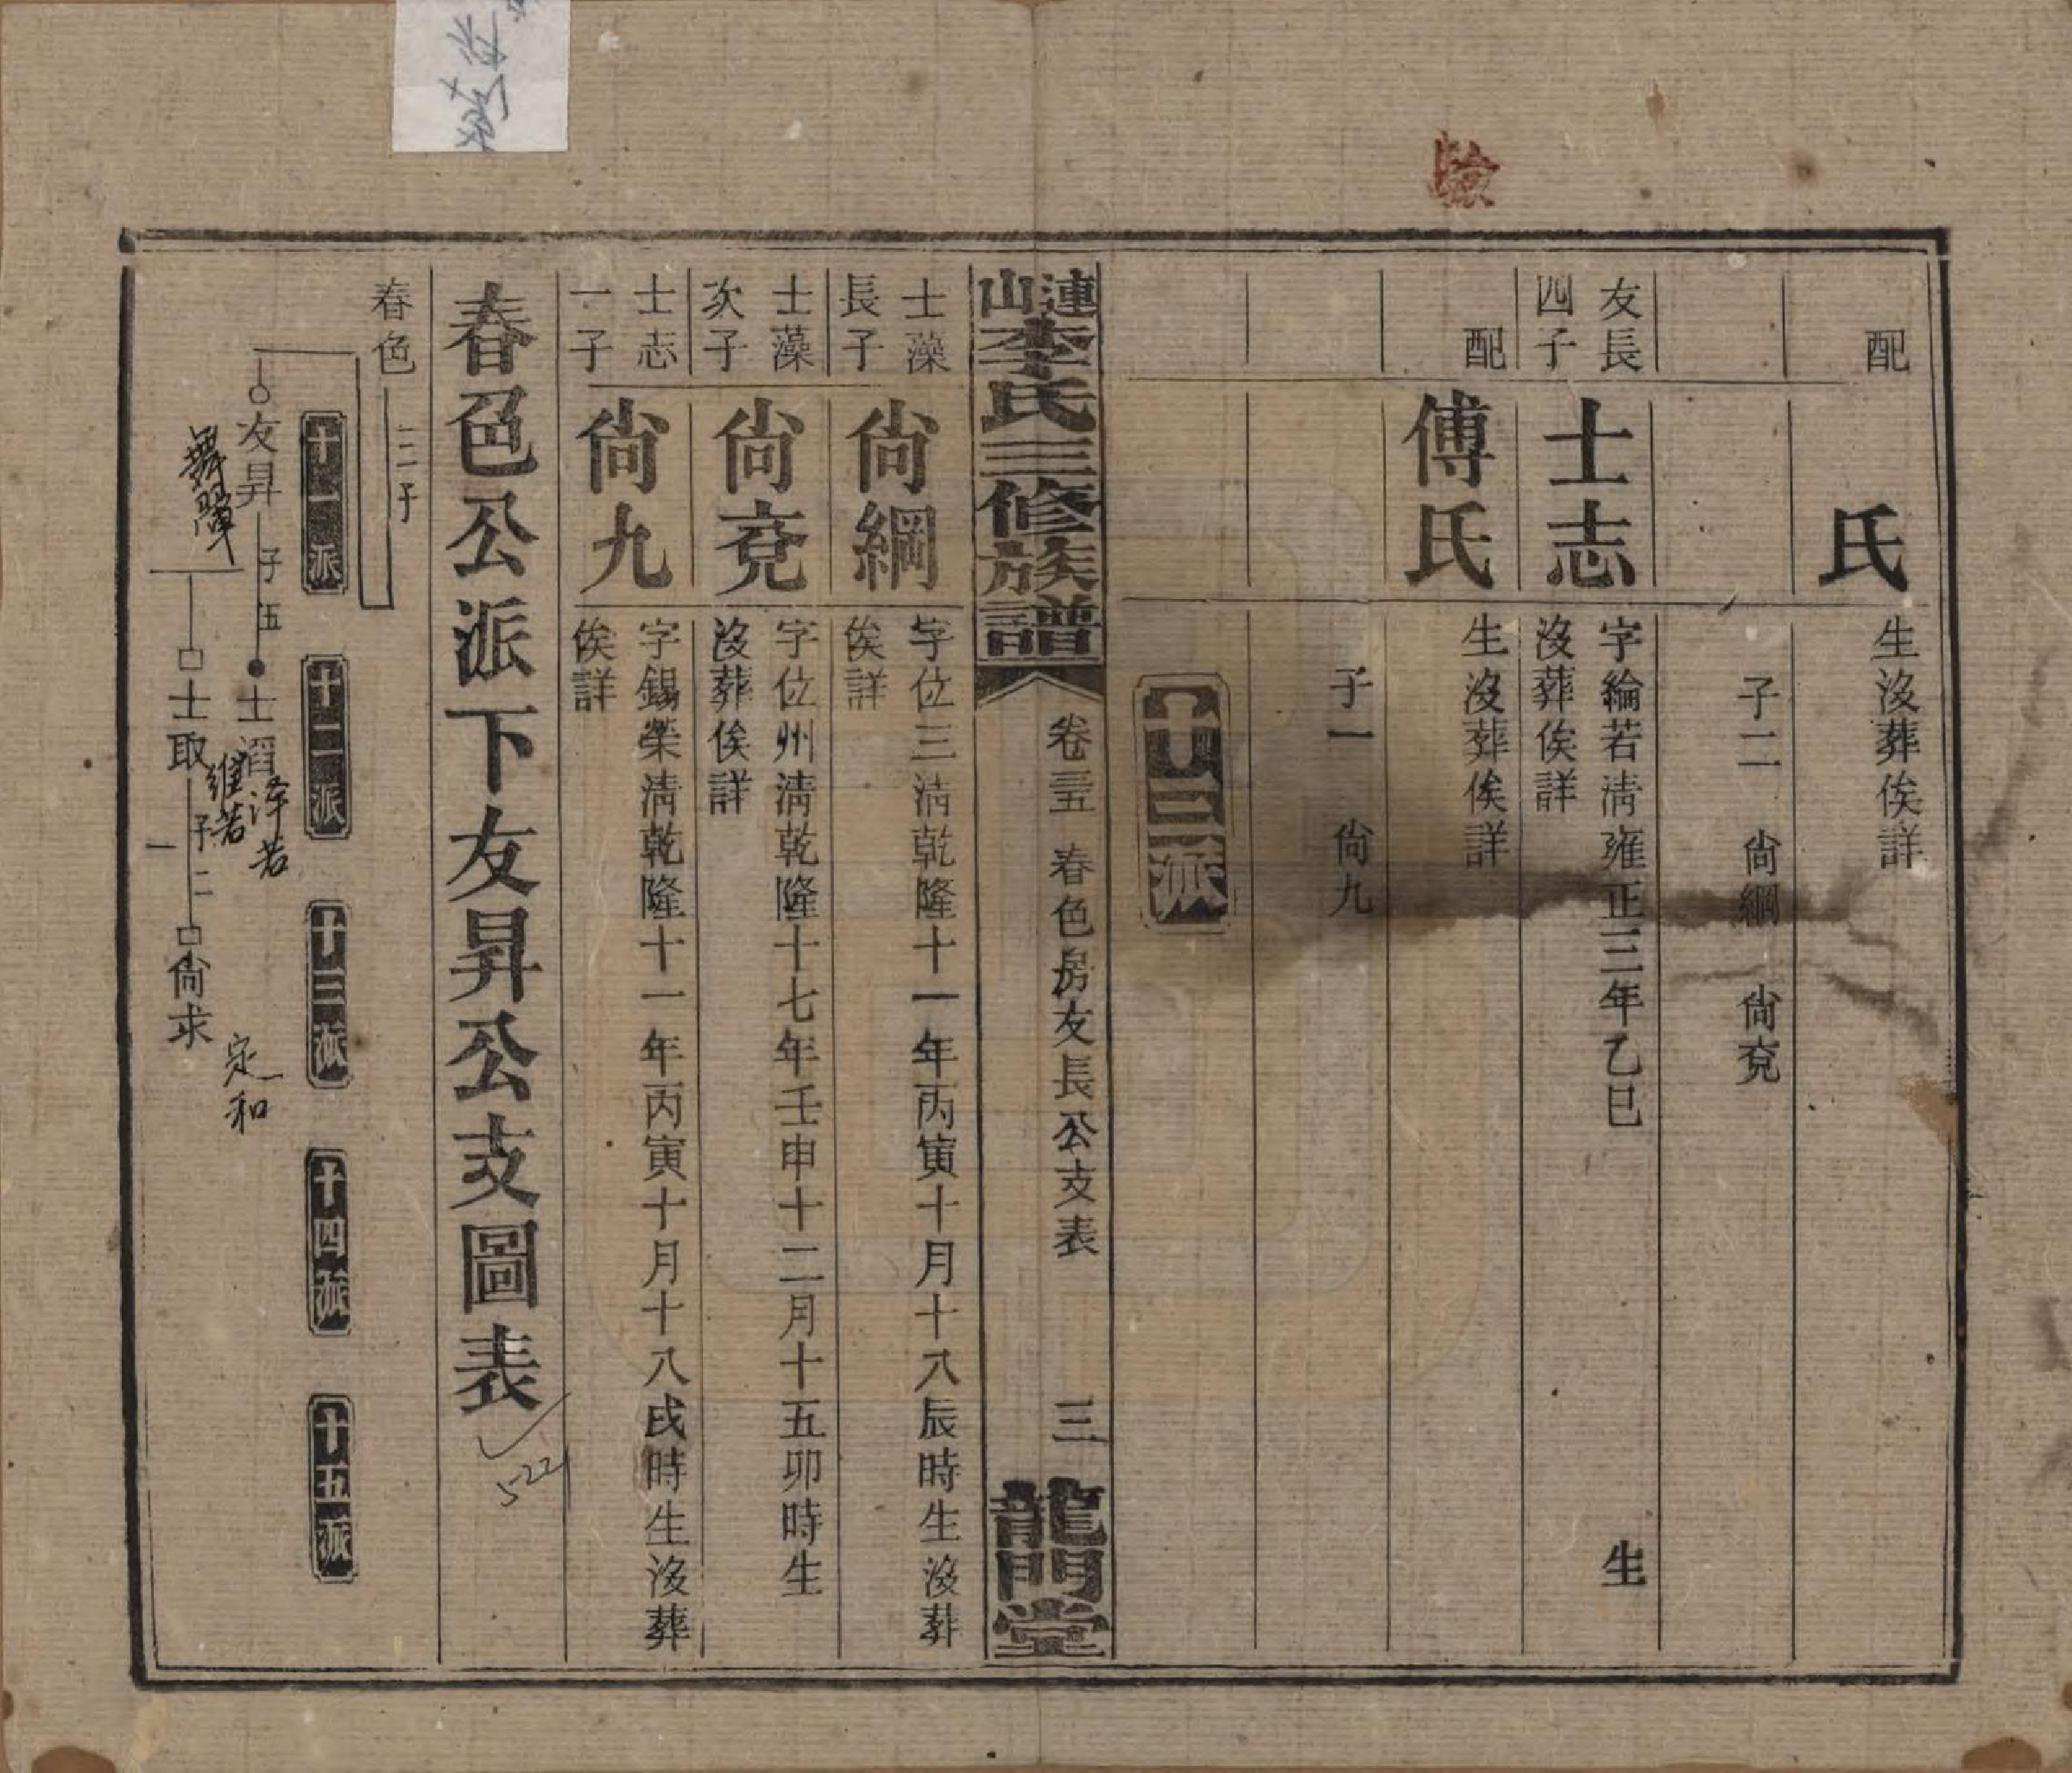 配
氏
生沒葬俟詳
子二　尙綱　尙兗
友長
四子
士志
字綸若淸雍正三年乙巳　生
沒葬俟詳
配
傅氏
生沒葬俟詳
子一　尙九
十三派
漣山李氏三修族譜
卷三五　春色房友長公支表
三
龍門堂
士藻
長子
尙綱
字位三淸乾隆十一年丙寅十月十八辰時生沒葬
俟詳
士藻
次子
尙兗
字位州淸乾隆十七年壬申十二月十五卯時生
沒葬俟詳
士志
一子
尙九
字錫榮淸乾隆十一年丙寅十月十八戌時生沒葬
俟詳
春色公派下友昇公支圖表
522
春色
三子
十一派
十二派
十三派
十四派
十五派
友昇
子五
士滔
泽若
士取
維若
子二
尙求
定和